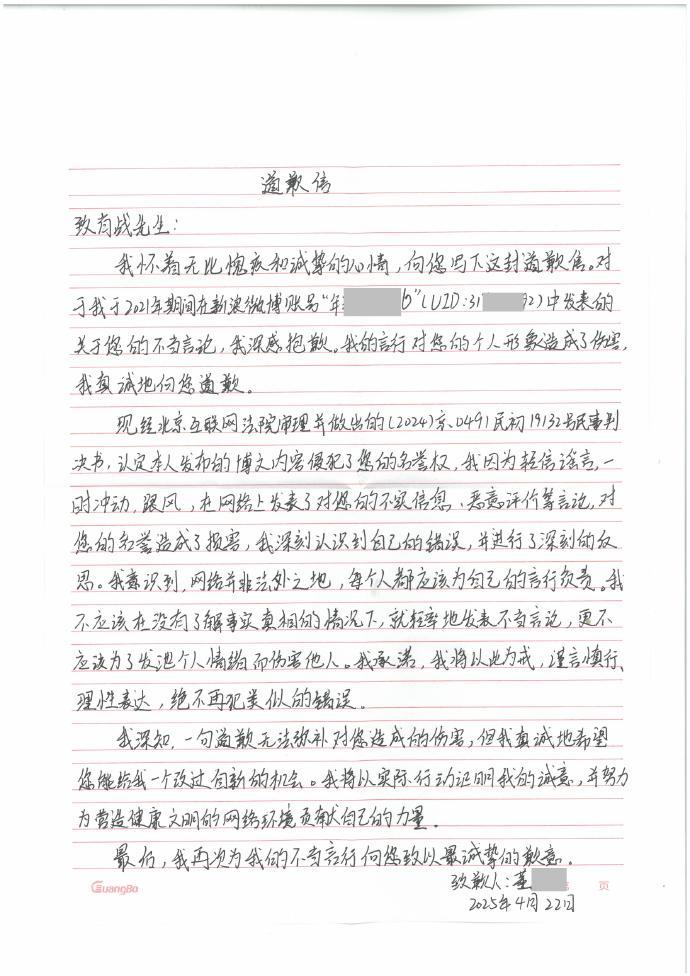 道歉信
致肖战先生：
我怀着无比愧疚和诚挚的心情，向您写下这封道歉信。对
于我于2021年期间在新浪微博账号"年 b"（UID：31 92）中发表的
关于您的不当言论，我深感抱歉。我的言行对您的个人形象造成了伤害，
我真诚地向您道歉。
现经北京互联网法院审理并做出的（2024）京0491民初19132号民事判
决书，认定本人发布的博文内容侵犯了您的名誉权，我因为轻信谣言，一
时冲动，跟风，在网络上发表了对您的不实信息、恶意评价等言论，对
您的名誉造成了损害，我深刻认识到自己的错误，并进行了深刻的反
思。我意识到，网络并非法外之地，每个人都应该为自己的言行负责。我
不应该在没有了解事实真相的情况下，就轻率地发表不当言论，更不
应该为了发泄个人情绪而伤害他人。我承诺，我将以此为戒，谨言慎行，
理性表达，绝不再犯类似的错误。
我深知，一句道歉无法弥补对您造成的伤害，但我真诚地希望
您能给我一个改过自新的机会。我将以实际行动证明我的诚意，并努力
为营造健康文明的网络环境贡献自己的力量。
最后，我再次为我的不当言行向您致以最诚挚的歉意。
致歉人：董
GuangBo 页
2025年4月22日